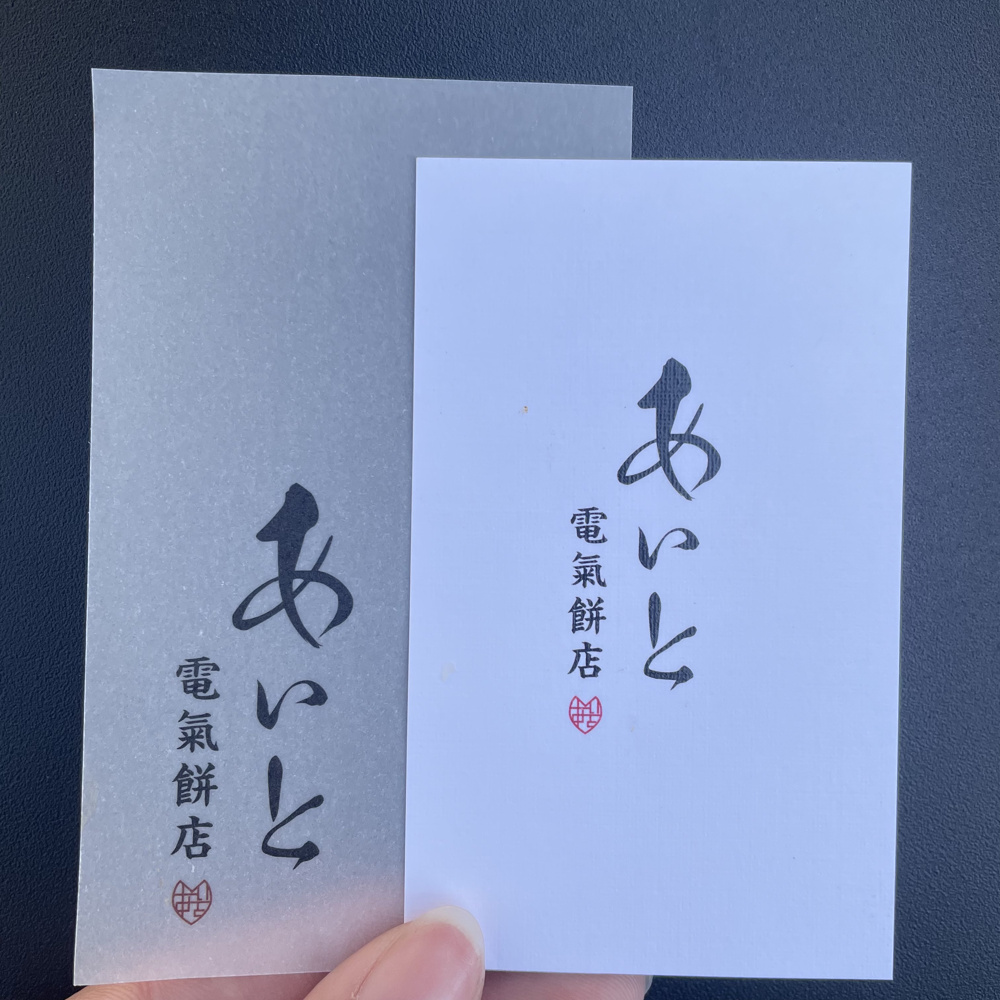 あいと
電氣餅店
あいと
電氣餅店